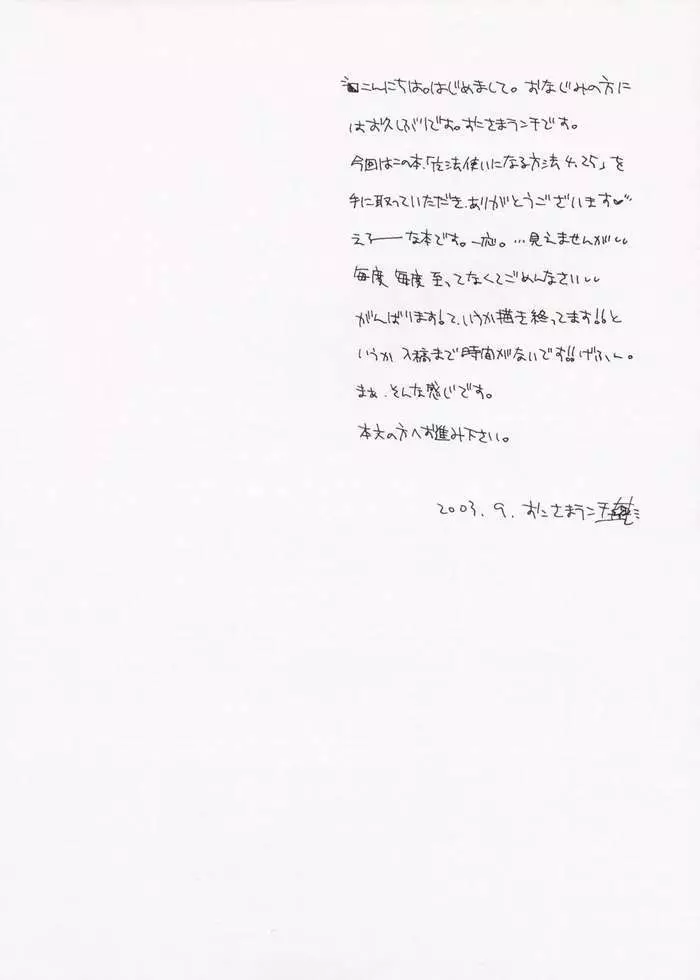 こんにちは。はじめまして。おなじみの方に
はお久しぶりです。おにさまランチです。
今回はこの本、「法使いになる方法4.25」を
手に取っていただき、ありがとうございます♡
えろ――な本です。一応。…見えませんが
毎度毎度至ってなくてごめんなさい
がんばります!て、いうか描き終ってます!!と
いうか入稿まで時間がないです!!げふー。
まぁ、そんな感じです。
本文の方へお進み下さい。
2003.9.おにさまランチ